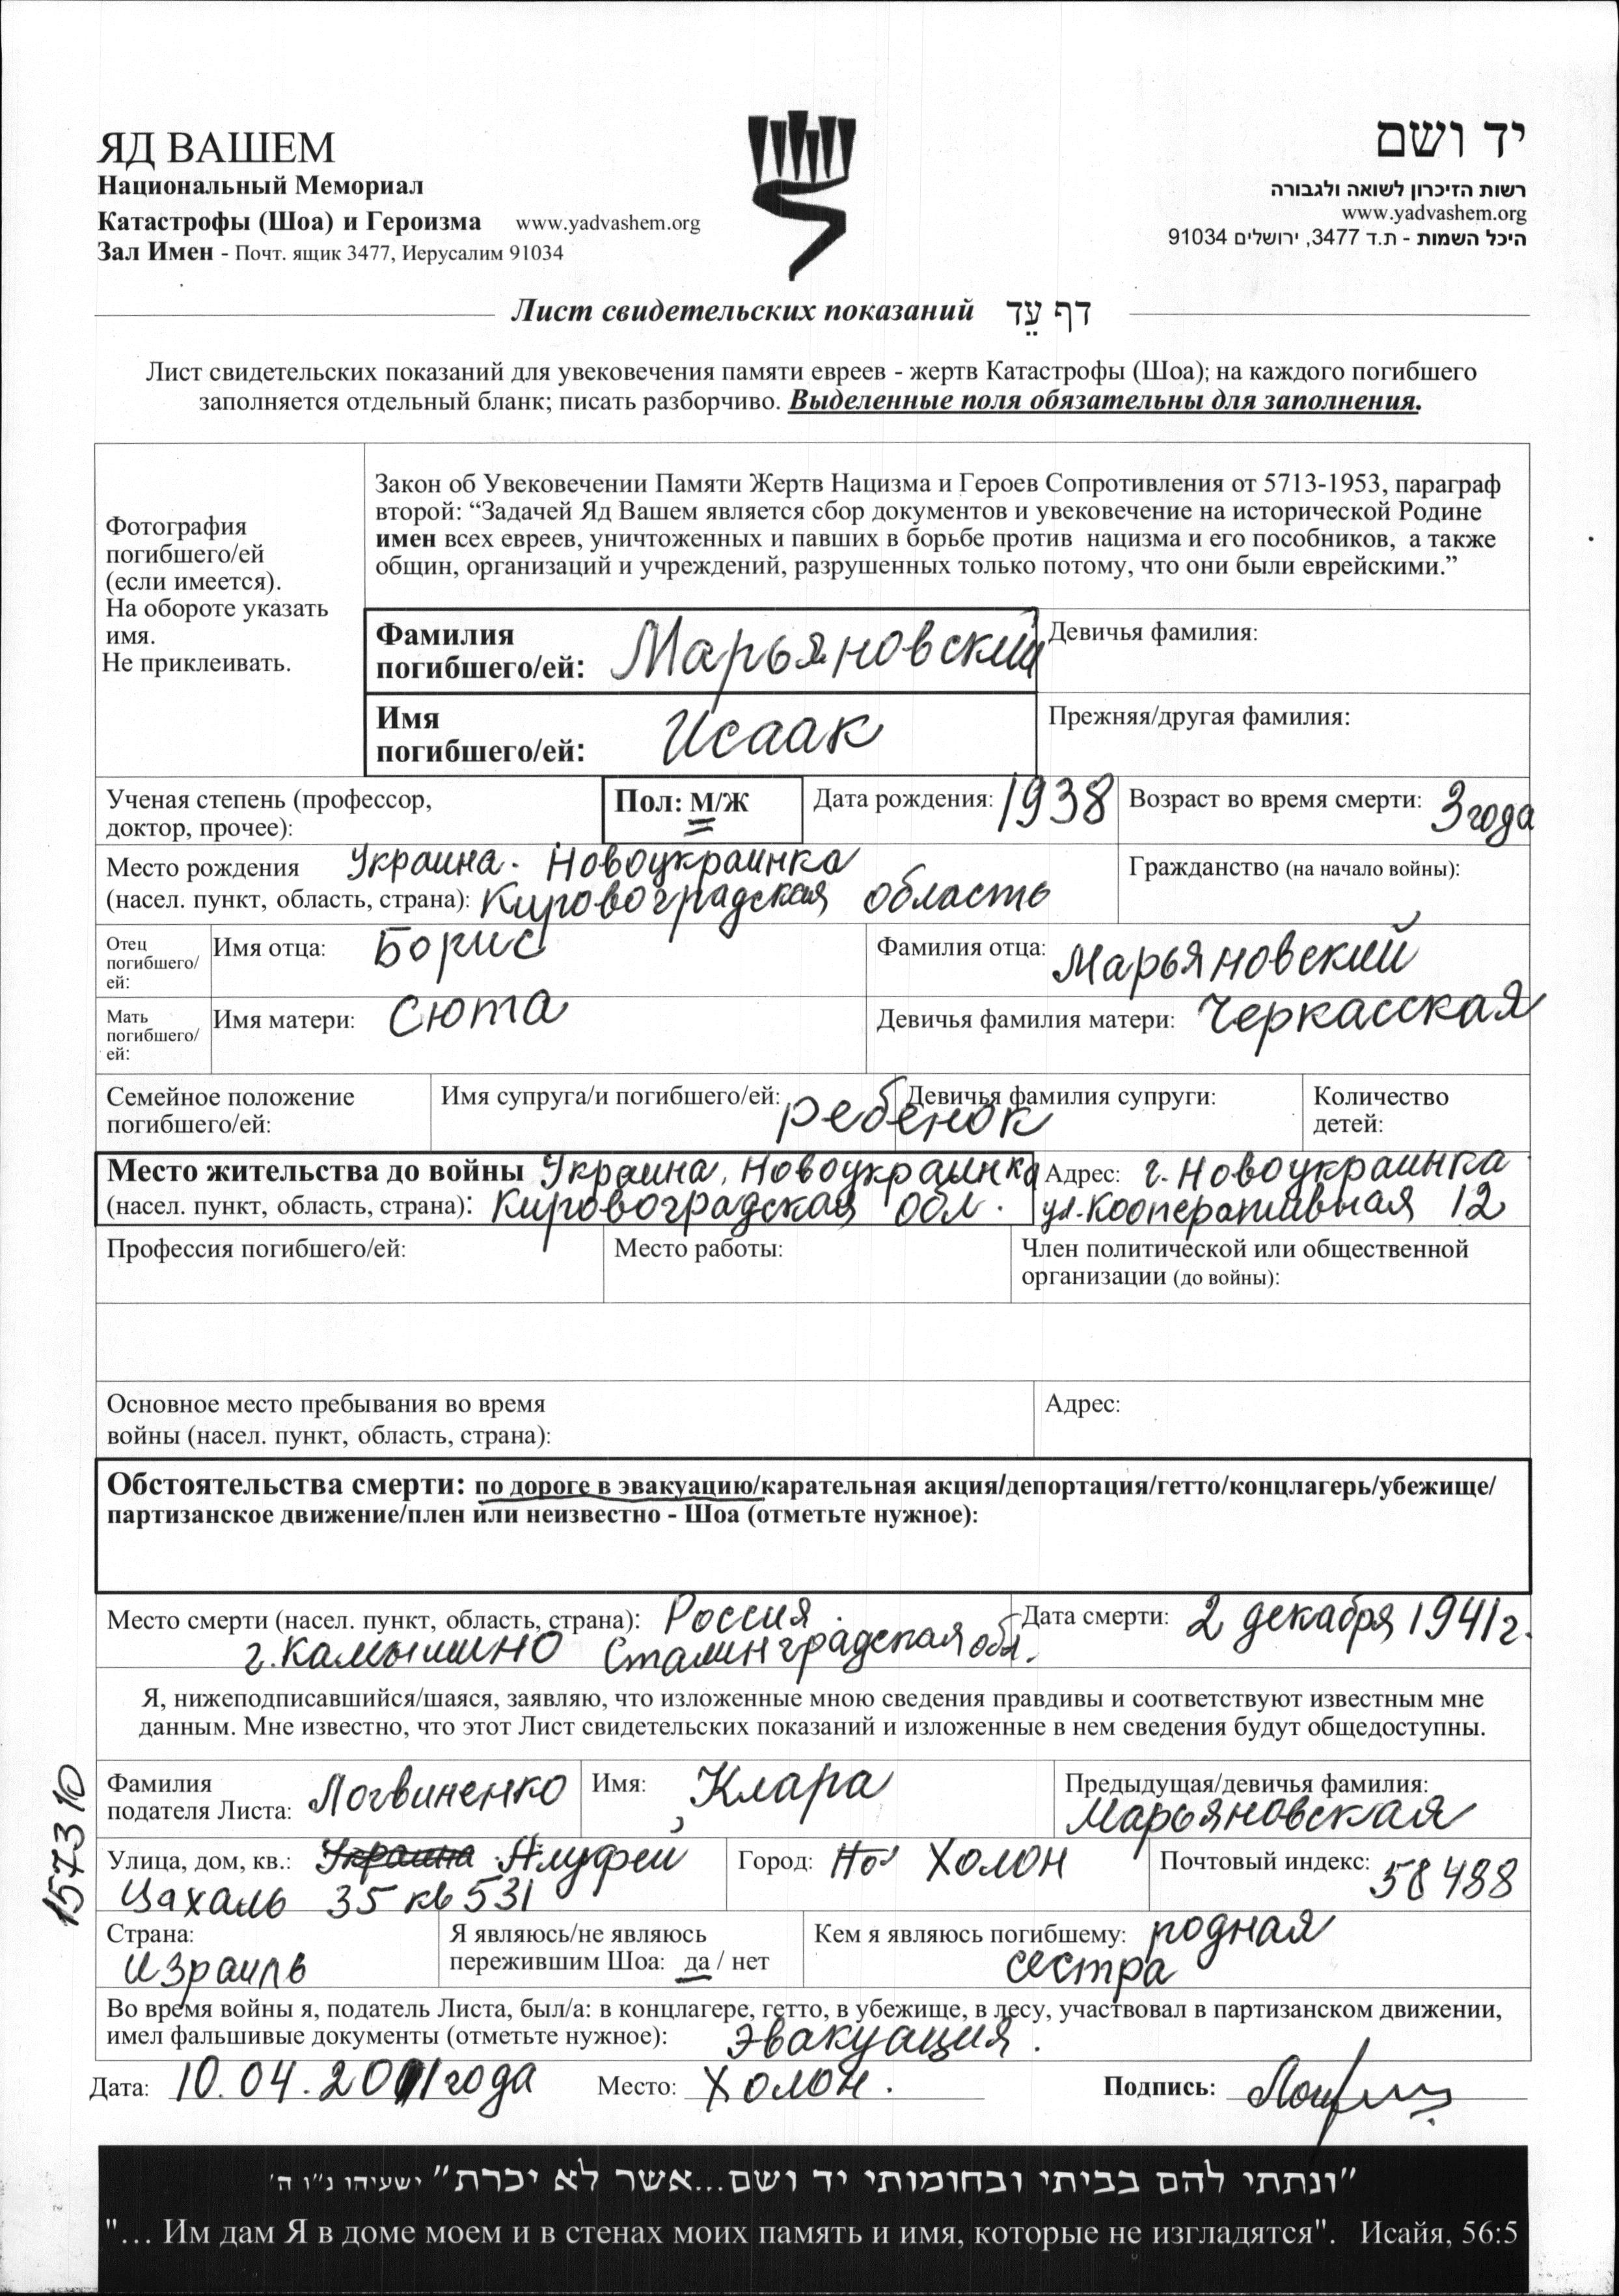 ЯД ВАШЕМ
Национальный Мемориал
Катастрофы (Шоа) и Героизма www.yadvashem.org
Зал Имен - Почт. ящик 3477, Иерусалим 91034
יד ושם
רשות הזיכרון לשואה ולגבורה
www.yadvashem.org
היכל השמות - ת.ד 3477, ירושלים 91034
Лист свидетельских показаний דף עֵד
Лист свидетельских показаний для увековечения памяти евреев - жертв Катастрофы (Шоа); на каждого погибшего
заполняется отдельный бланк; писать разборчиво. Выделенные поля обязательны для заполнения.
Фотография
погибшего/ей
(если имеется).
На обороте указать
имя.
Не приклеивать.
Закон об Увековечении Памяти Жертв Нацизма и Героев Сопротивления от 5713-1953, параграф
второй: “Задачей Яд Вашем является сбор документов и увековечение на исторической Родине
имен всех евреев, уничтоженных и павших в борьбе против нацизма и его пособников, а также
общин, организаций и учреждений, разрушенных только потому, что они были еврейскими.”
Фамилия
погибшего/ей: Марьяновский
Девичья фамилия:
Имя
погибшего/ей: Исаак
Прежняя/другая фамилия:
Ученая степень (профессор,
доктор, прочее):
Пол: М/Ж
Дата рождения: 1938
Возраст во время смерти: 3 года
Место рождения Украина. Новоукраинка
(насел. пункт, область, страна): Кировоградская область
Гражданство (на начало войны):
Отец
погибшего/
ей:
Имя отца: Борис
Фамилия отца: Марьяновский
Мать
погибшего/
ей:
Имя матери: Сюта
Девичья фамилия матери: Черкасская
Семейное положение
погибшего/ей:
Имя супруга/и погибшего/ей: ребенок
Девичья фамилия супруги:
Количество
детей:
Место жительства до войны Украина, Новоукраинка
(насел. пункт, область, страна): Кировоградская обл.
Адрес: г. Новоукраинка
ул. Кооперативная 12
Профессия погибшего/ей:
Место работы:
Член политической или общественной
организации (до войны):
Основное место пребывания во время
войны (насел. пункт, область, страна):
Адрес:
Обстоятельства смерти: по дороге в эвакуацию/карательная акция/депортация/гетто/концлагерь/убежище/
партизанское движение/плен или неизвестно - Шоа (отметьте нужное):
Место смерти (насел. пункт, область, страна): Россия.
г. Камышино Сталинградская обл.
Дата смерти: 2 декабря 1941 г.
Я, нижеподписавшийся/шаяся, заявляю, что изложенные мною сведения правдивы и соответствуют известным мне
данным. Мне известно, что этот Лист свидетельских показаний и изложенные в нем сведения будут общедоступны.
Фамилия
подателя Листа: Логвиненко
Имя: Клара
Предыдущая/девичья фамилия:
Марьяновская
Улица, дом, кв.: Украина Алуфеи
Цахаль 35 кв 531
Город: Холон
Почтовый индекс: 58488
Страна:
Израиль
Я являюсь/не являюсь
пережившим Шоа: да / нет
Кем я являюсь погибшему: родная
сестра
Во время войны я, податель Листа, был/а: в концлагере, гетто, в убежище, в лесу, участвовал в партизанском движении,
имел фальшивые документы (отметьте нужное): Эвакуация.
Дата: 10.04.2011 года
Место: Холон.
Подпись:
157310
"ונתתי להם בביתי ובחומותי יד ושם...אשר לא יכרת" ישעיהו נ"ו ה'
"... Им дам Я в доме моем и в стенах моих память и имя, которые не изгладятся". Исайя, 56:5